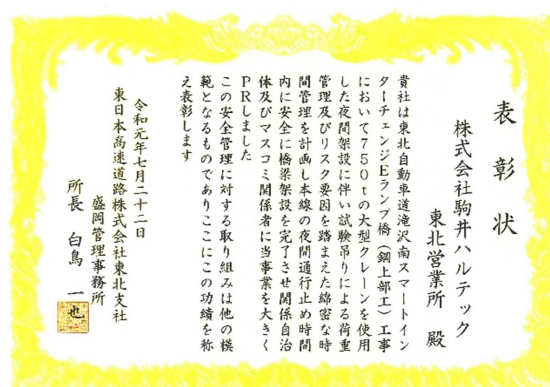 表彰状
株式会社駒井ハルテック
東北営業所 殿
貴社は東北自動車道滝沢南スマートイン
ターチェンジEランプ橋(鋼上部工)工事
において750tの大型クレーンを使用
した夜間架設に伴い試験吊りによる荷重
管理及びリスク要因を踏まえた綿密な時
間管理を計画し本線の夜間通行止め時間
内に安全に橋梁架設を完了させ関係自治
体及びマスコミ関係者に当事業を大きく
PRしました
この安全管理に対する取り組みは他の模
範となるものでありここにこの功績を称
え表彰します
令和元年七月二十二日
東日本高速道路株式会社東北支社
盛岡管理事務所
所長 白鳥 一也